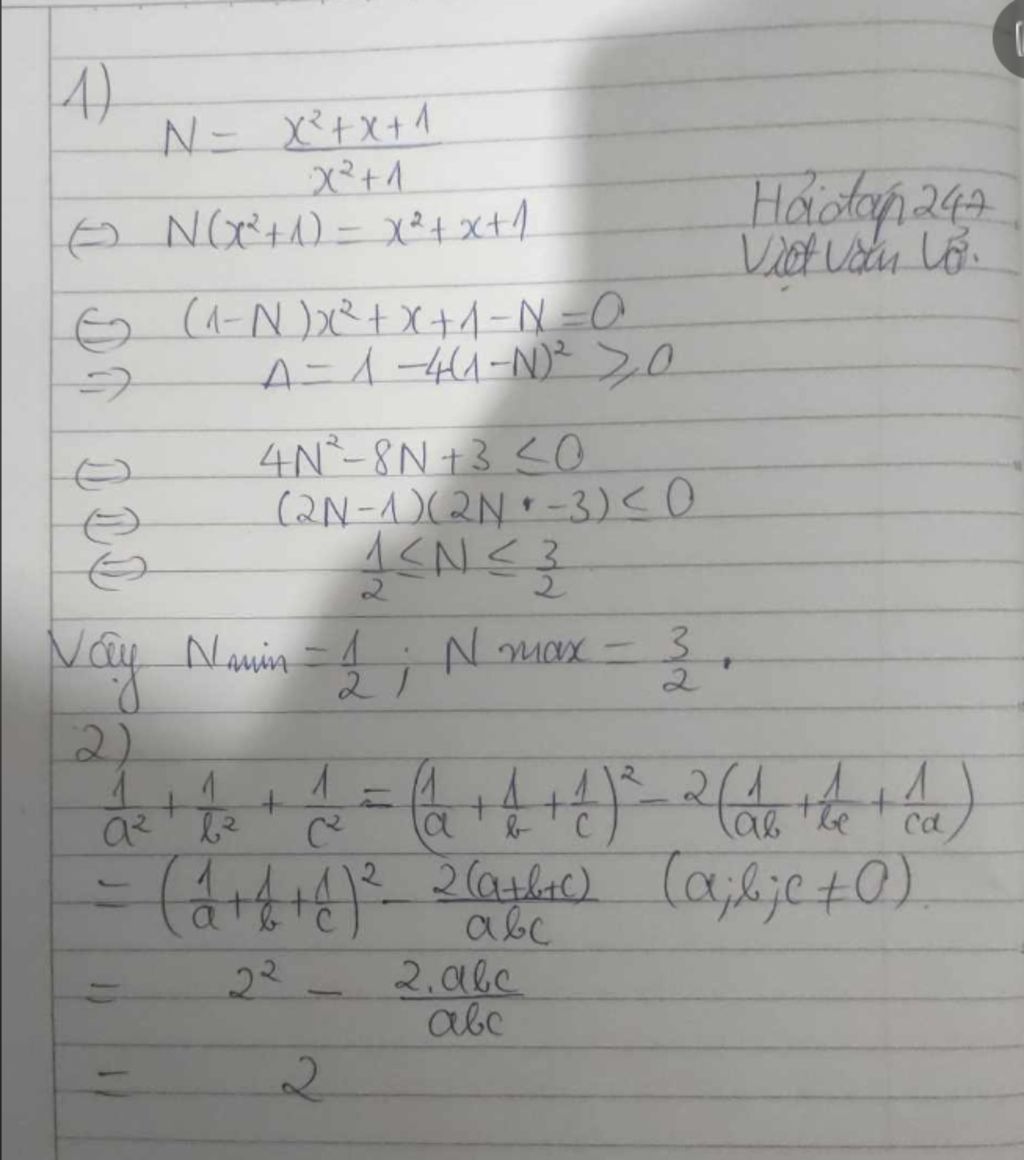 1)
N = \frac{x²+x+1}{x²+1}
⇔ N(x²+1) = x²+x+1
Hỏi đáp 247
Việt Văn Võ.
⇔ (1-N)x²+x+1-N=0
⇒ Δ = 1 -4(1-N)² ≥ 0
⇔ 4N²-8N+3 ≤ 0
⇔ (2N-1)(2N-3) ≤ 0
⇔ \frac{1}{2} ≤ N ≤ \frac{3}{2}
Vậy N min = \frac{1}{2} ; N max = \frac{3}{2}.
2)
\frac{1}{a²} + \frac{1}{b²} + \frac{1}{c²} = (\frac{1}{a} + \frac{1}{b} + \frac{1}{c})² - 2(\frac{1}{ab} + \frac{1}{bc} + \frac{1}{ca})
= (\frac{1}{a} + \frac{1}{b} + \frac{1}{c})² - \frac{2(a+b+c)}{abc} (a;b;c ≠ 0).
= 2² - \frac{2.abc}{abc}
= 2